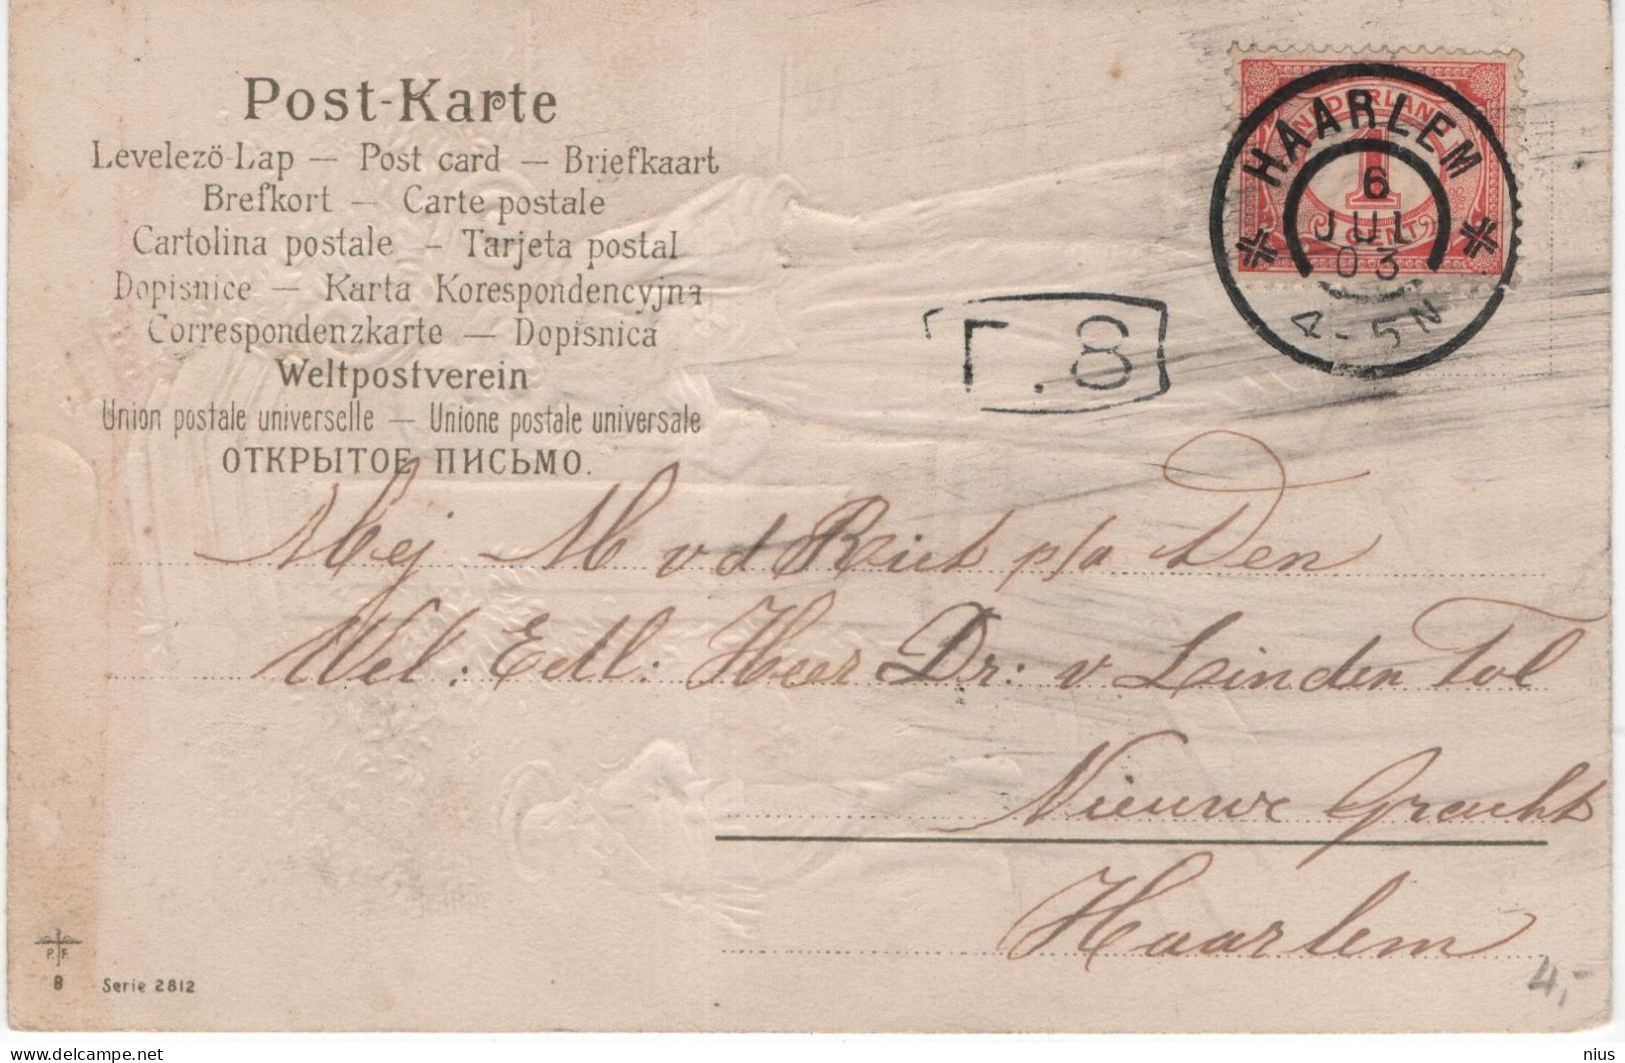 Post-Karte
Levelező-Lap — Post card — Briefkaart
Brefkort — Carte postale
Cartolina postale — Tarjeta postal
Dopisnice — Karta Korespondencyjna
Correspondenzkarte — Dopisnica
Weltpostverein
Union postale universelle — Unione postale universale
ОТКРЫТОЕ ПИСЬМО.
NEDERLAND
1
CENT
HAARLEM
6
JUL
03
4-5N
T.8
Mej M v d Riet p/a Den
Wel: Edl: Heer Dr: v Linden Tol
Nieuwe Gracht
Haarlem
P.F.
8
Serie 2812
4,-
delcampe.net
nius